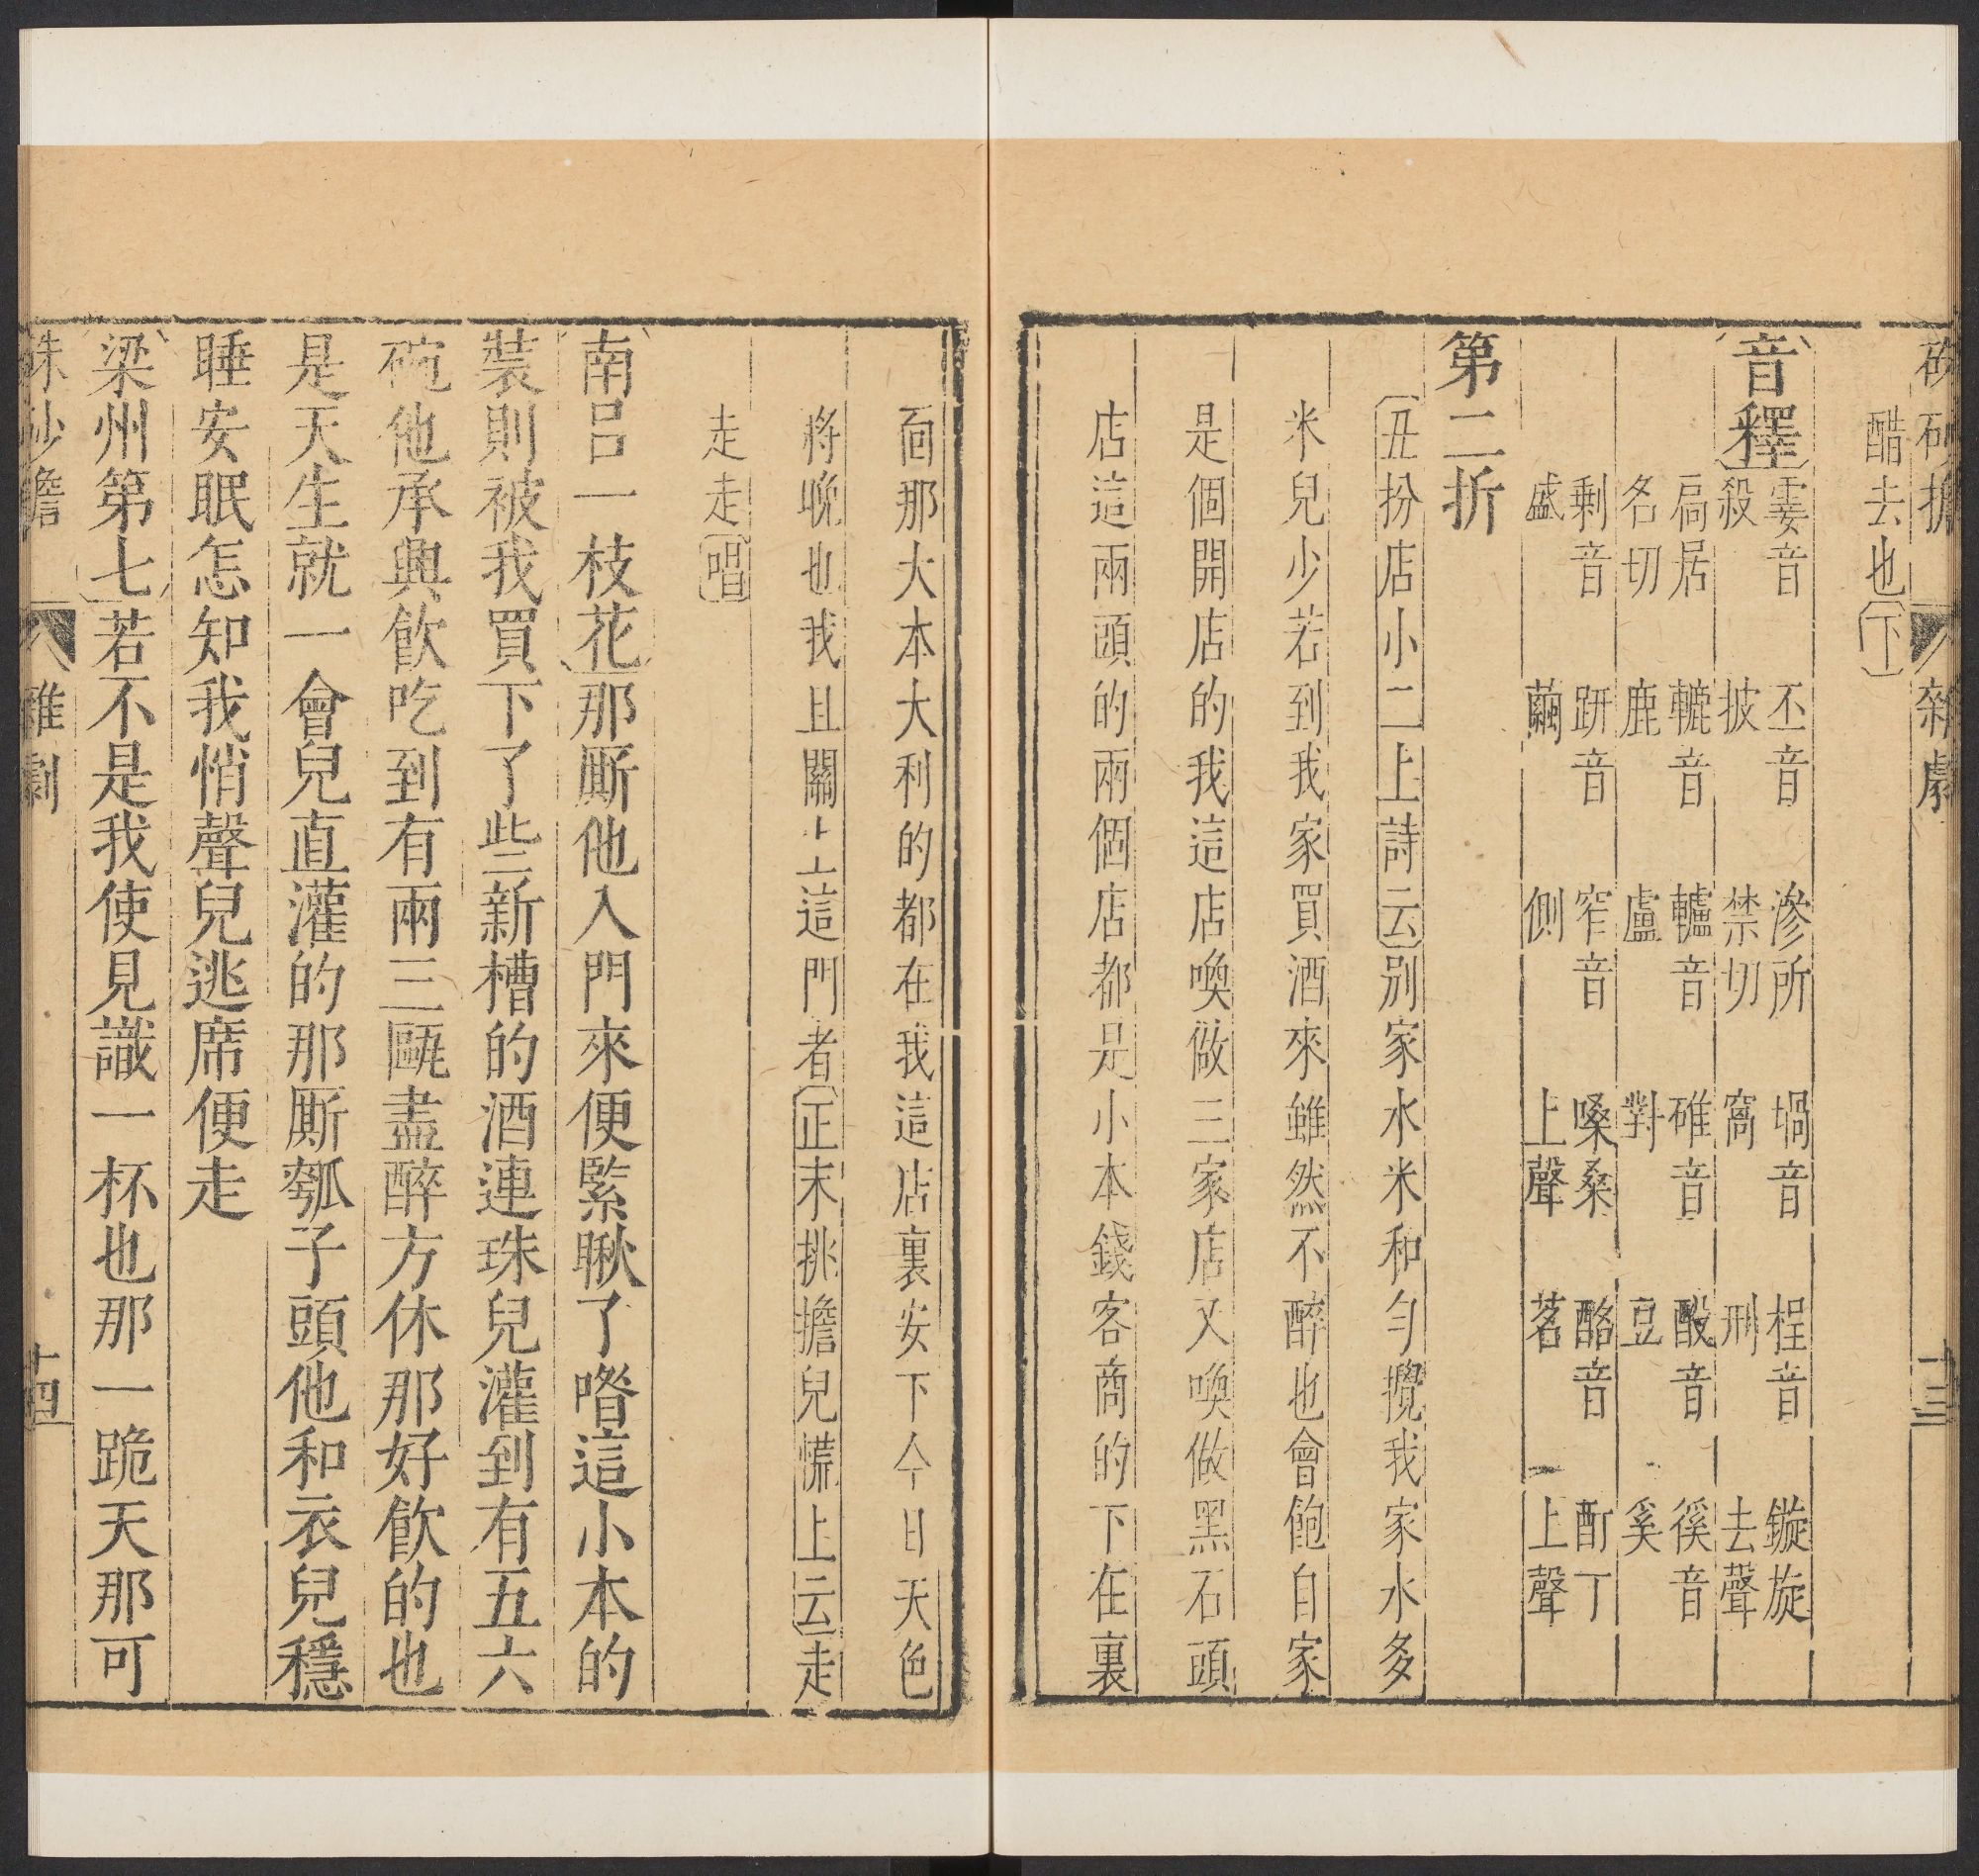 硃砂擔 雜劇 十三
醋去也〔下〕
〔音釋〕霎音殺 丕音披 滲所禁切 堝音窩 桯音刑 鏇旋去聲
扃居名切 轆音鹿 轤音盧 碓音對 酘音豆 徯音奚
剩音盛 趼音繭 窄音側 嗓桑上聲 酩音茗 酊丁上聲
第二折
〔丑扮店小二上詩云〕別家水米和勻攪我家水多
米兒少若到我家買酒來雖然不醉也會飽自家
是個開店的我這店喚做三家店又喚做黑石頭
店這兩頭的兩個店都是小本錢客商的下在裏
面那大本大利的都在我這店裏安下今日天色
將晚也我且關上這門者〔正末挑擔兒慌上云〕走
走走〔唱〕
〔南呂一枝花〕那厮他入門來便緊瞅了喒這小本的
裝則被我買下了些新槽的酒連珠兒灌到有五六
碗他承興飲吃到有兩三甌盡醉方休那好飲的也
是天生就一會兒直灌的那厮瓠子頭他和衣兒穩
睡安眠怎知我悄聲兒逃席便走
〔梁州第七〕若不是我使見識一杯也那一跪天那可
硃砂擔 雜劇 十四